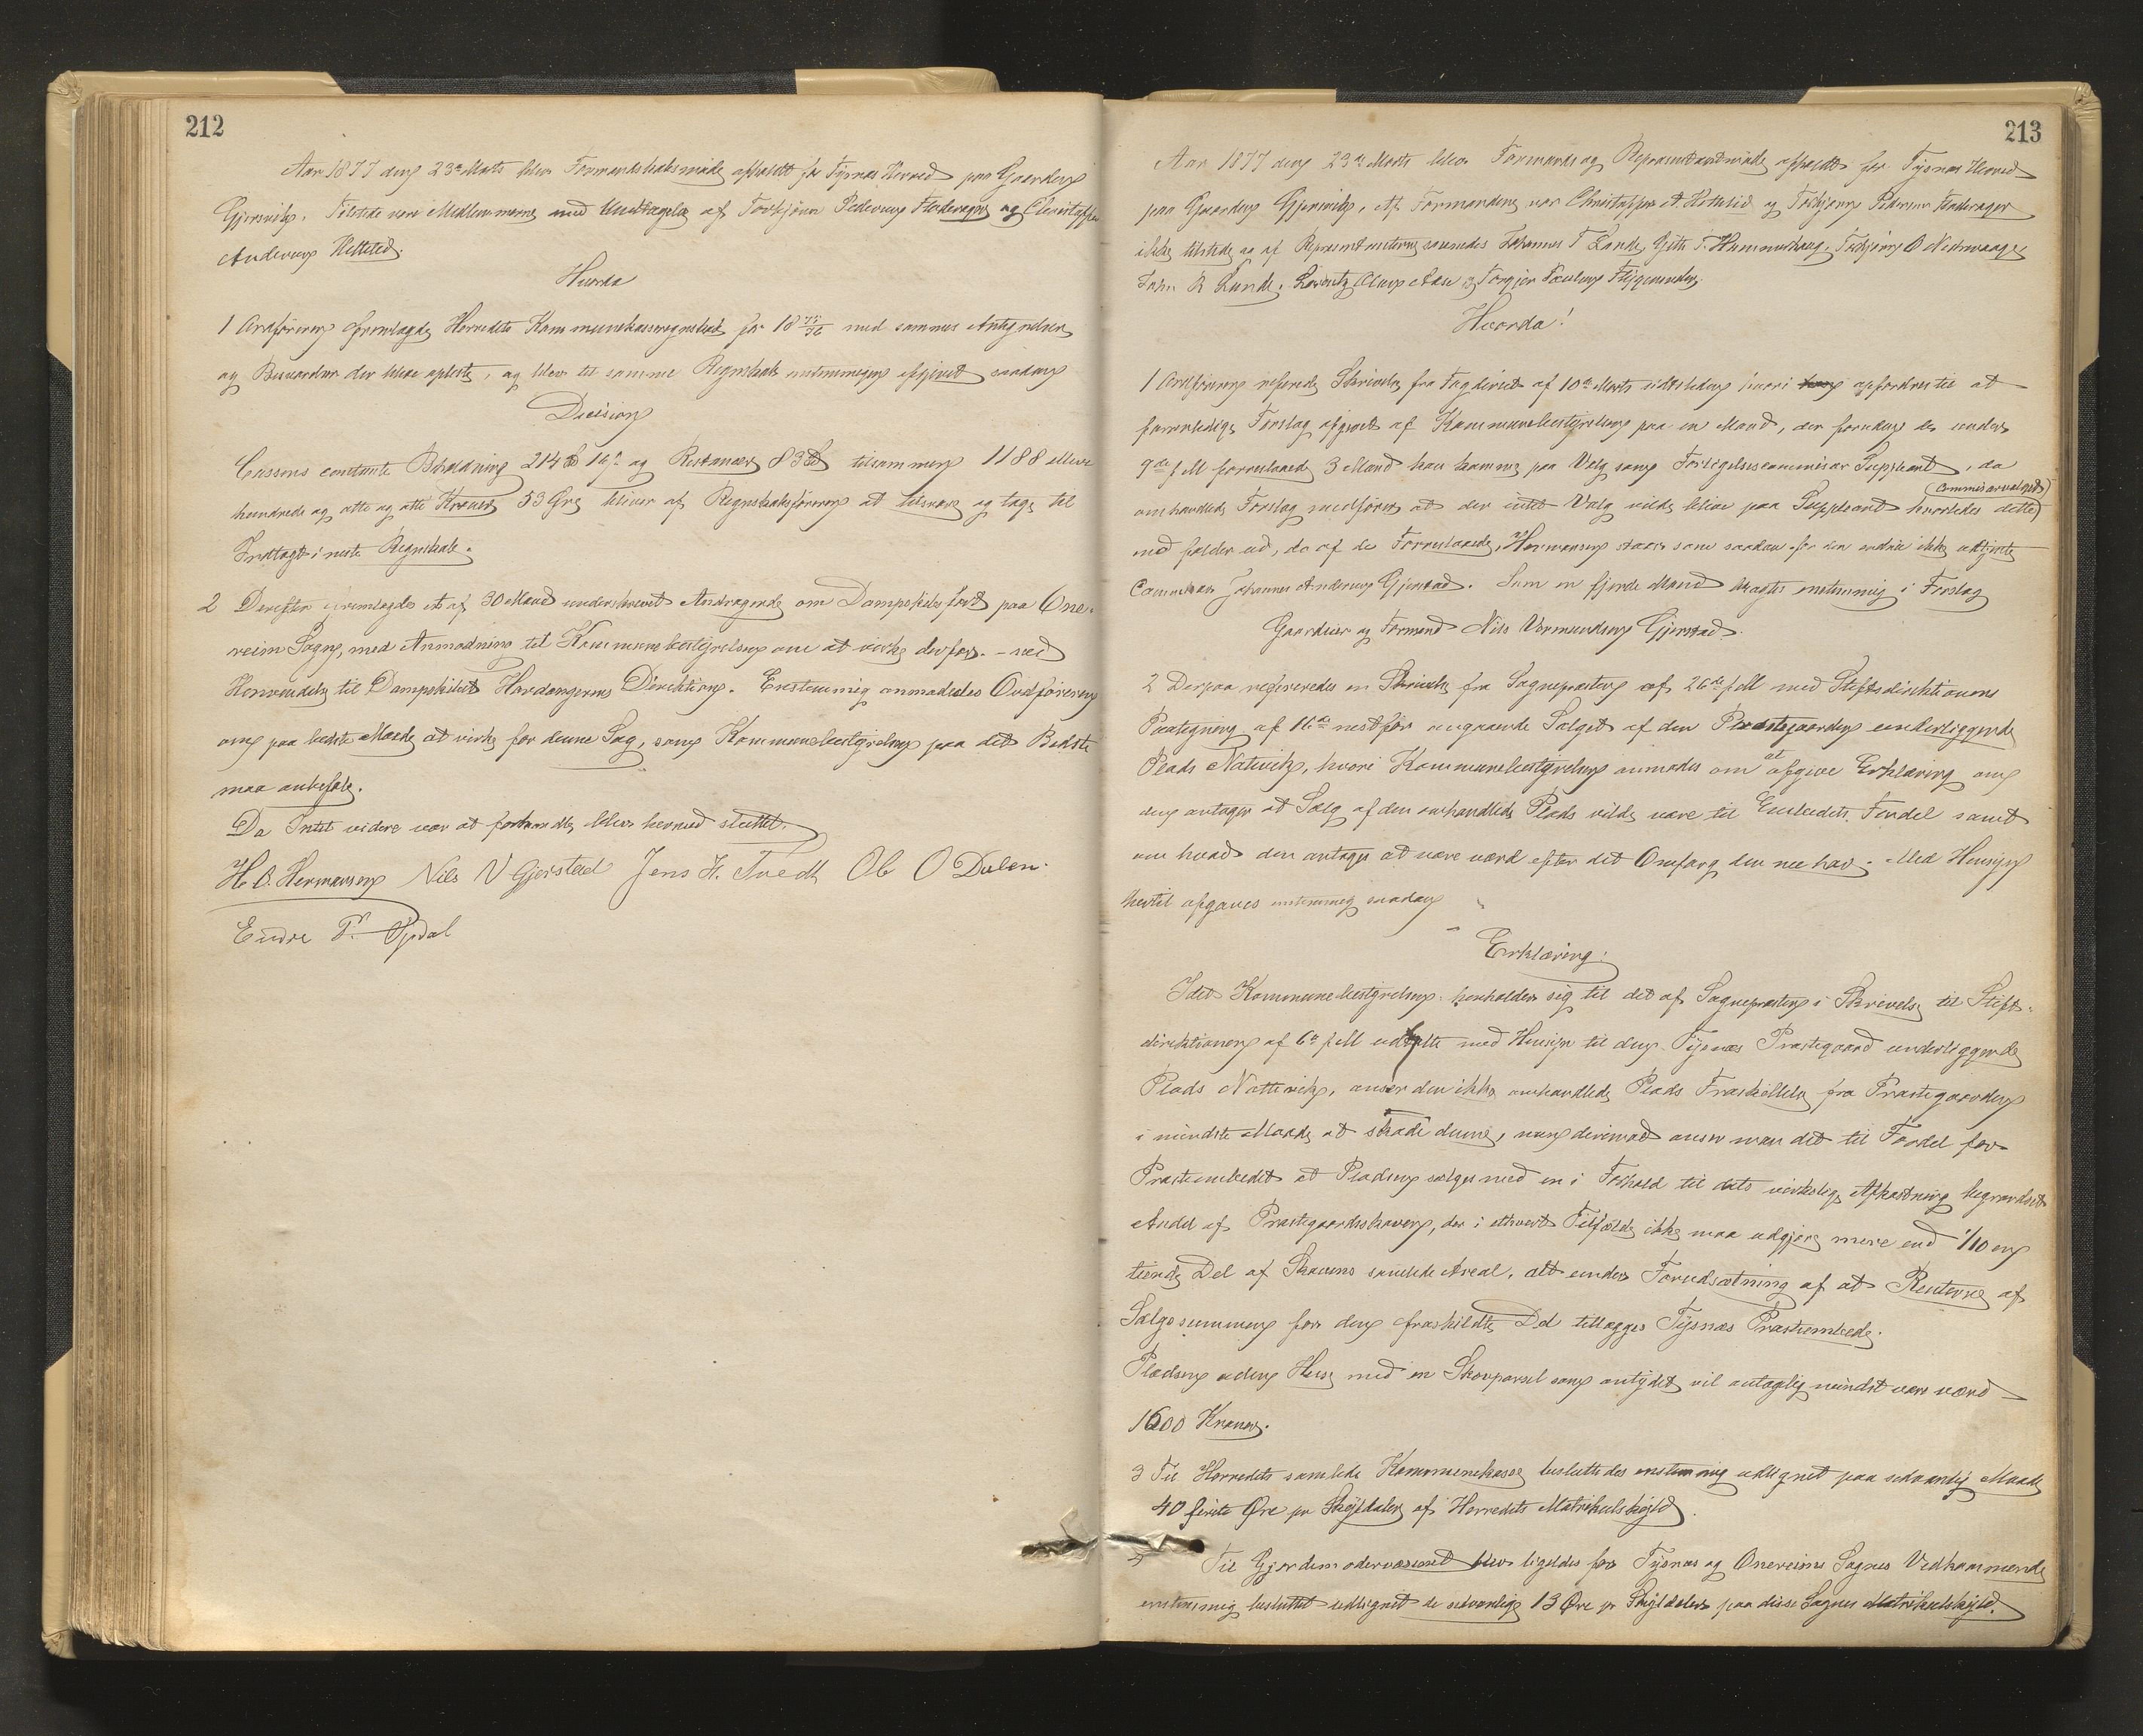 212
Aar 1877 den 23de Marts blev Formandskabsmøde afholdt for Tysnæs Herred paa Gaarden
Gjersvik. Tilstede vare Medlemmerne med Undtagelse af Torbjørn Pedersen Fladevager og Christoffer
Andersen Hetlesid.
Hvorda
1 Ordføreren fremlagde Herredets Kommunekasseregnskab for 18 75/76 med sammes Antegnelser
og Besvarelser der bleve oplæste, og blev til samme Regnskab enstemmigen afgivet saadan
Decision
Cassens contante Beholdning 214 16 og Restancer 83 tilsammen 1188 elleve
hundrede og otte og otti Kroner 53 Øre bliver af Regnskabsføreren at tilsvare og tage til
Indtægt i neste Regnskab.
2 Derefter fremlagdes et af 30 Mænd underskrevet Andragende om Dampskibsfart paa One-
reim Sogn, med Anmodning til Kommunebestyrelsen om at virke derfor. - ved
Henvendelse til Dampskibet Hardangerens Direktion. Enstemmig anmodedes Ordføreren
om paa bedste Maade at virke for denne Sag, som Kommunebestyrelsen paa det Bedste
maa anbefale.
Da Intet videre var at forhandle blev hermed sluttet.
H. O. Hermansen Nils N Gjerstad Jens H. Tvedt Ole O Dalen
Endre P. Opdal
213
Aar 1877 den 23de Marts blev Formands og Repræsentantmøde afholdt for Tysnæs Herred
paa Gaarden Gjersvik, af Formændene var Christoffer A. Hetlesid og Torbjørn Pedersen Fladevager
ikke tilstede og af Repræsentanterne savnedes Johannes T Lande, Gitle T. Hummerhaug, Torbjørn O Nedrevaage,
John R Lunde, Lorentz Olsen Aae og Torgjer Poulsen Flygansvær.
Hvorda!
1 Ordføreren refererede Skrivelse fra Fogderiet af 10de Marts sidstleden hvori opfordres til at
foranledige Forslag afgivet af Kommunebestyrelsen paa en Mand, der foruden de under
9de f M foreslaaede 3 Mænd kan komme paa Valg som Forligelsescommisær Suppleant, da
omhandlede Forslag medfører at der intet Valg vilde blive paa Suppleant hvorledes dette (Commisærvalget)
end falder ud, da af de Foreslaaede, Hermansen staar som saadan for den endnu ikke udtjente
Commisær Johannes Andersen Gjerstad. Som en fjerde Mand bragtes enstemmig i Forslag
Gaardeier og Formand Nils Vermundsen Gjerstad.
2 Derpaa refereredes en Skrivelse fra Sognepresten af 26de f M med Stiftsdirektionens
Paategning af 16de nestfør angaaende Salget af den Præstegaarden underliggende
Plads Natvik, hvori Kommunebestyrelsen anmodes om at afgive Erklæring om
den antager at Salg af den omhandlede Plads vilde være til Embedets Fordel samt
om hvad den antages at være værd efter det Omfang den nu har. Med Hensyn
hertil afgaves enstemmig saadan
Erklæring:
Idet Kommunebestyrelsen henholder sig til det af Sognepresten i Skrivelse til Stifts-
direktionen af 6te f M udtalte med Hensyn til den Tysnæs Præstegaard underliggende
Plads Nattvik, anser den ikke omhandlede Plads Fraskillelse fra Præstegaarden
i mindste Maade at skade denne, men derimod anser man det til Fordel for
Præsteembedet at Pladsen sælges med en i Forhold til dets virkelige Afkastning begrændset
Andel af Præstegaardsskoven, der i ethvert Tilfælde ikke maa udgjøre mere end 1/10 en
tiende Del af Skovens samlede Areal, alt under Forudsætning af at Renterne af
Salgssummen for den fraskildte Del tillægges Tysnæs Præsteembede.
Pladsen uden Huse med en Skovparsel som antydet vil antagelig mindst være værd
1600 Kroner.
3 Til Herredets samlede Kommunekasse besluttedes enstemmig udlignet paa sedvanlig Maade
40 førti Øre pr Skylddaler af Herredets Matrikulskyld.
Til Gjordemodervæsenet blev ligeledes for Tysnæs og Onereims Sognes Vedkommende
enstemmig besluttet udlignet de sedvanlige 13 Øre pr Skylddaler paa disse Sognes Matrikulskyld.